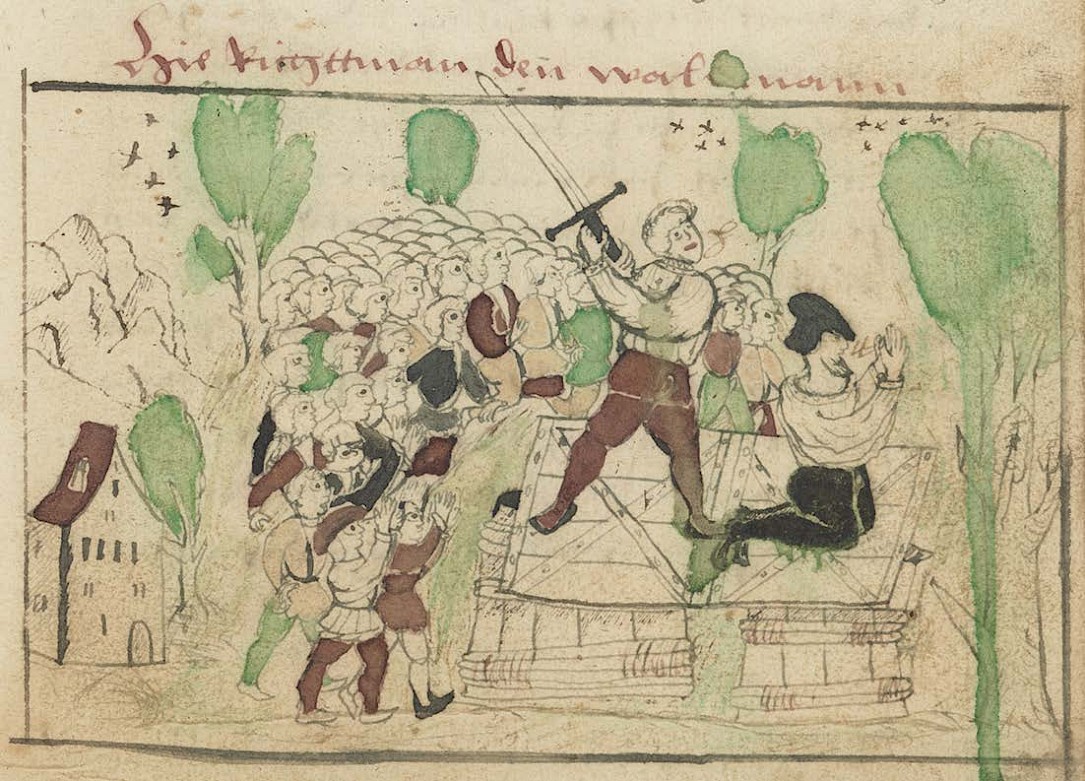 Hie Richttman den waldmann